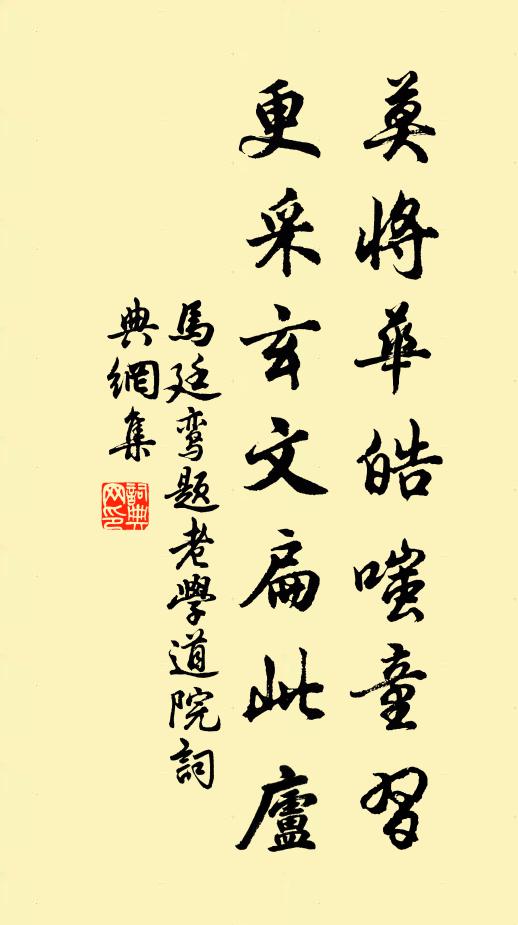 莫將華皓嗤童習
更采玄文扁此廬
馬廷鸞題老學道院詞
典網集
詞典
网印